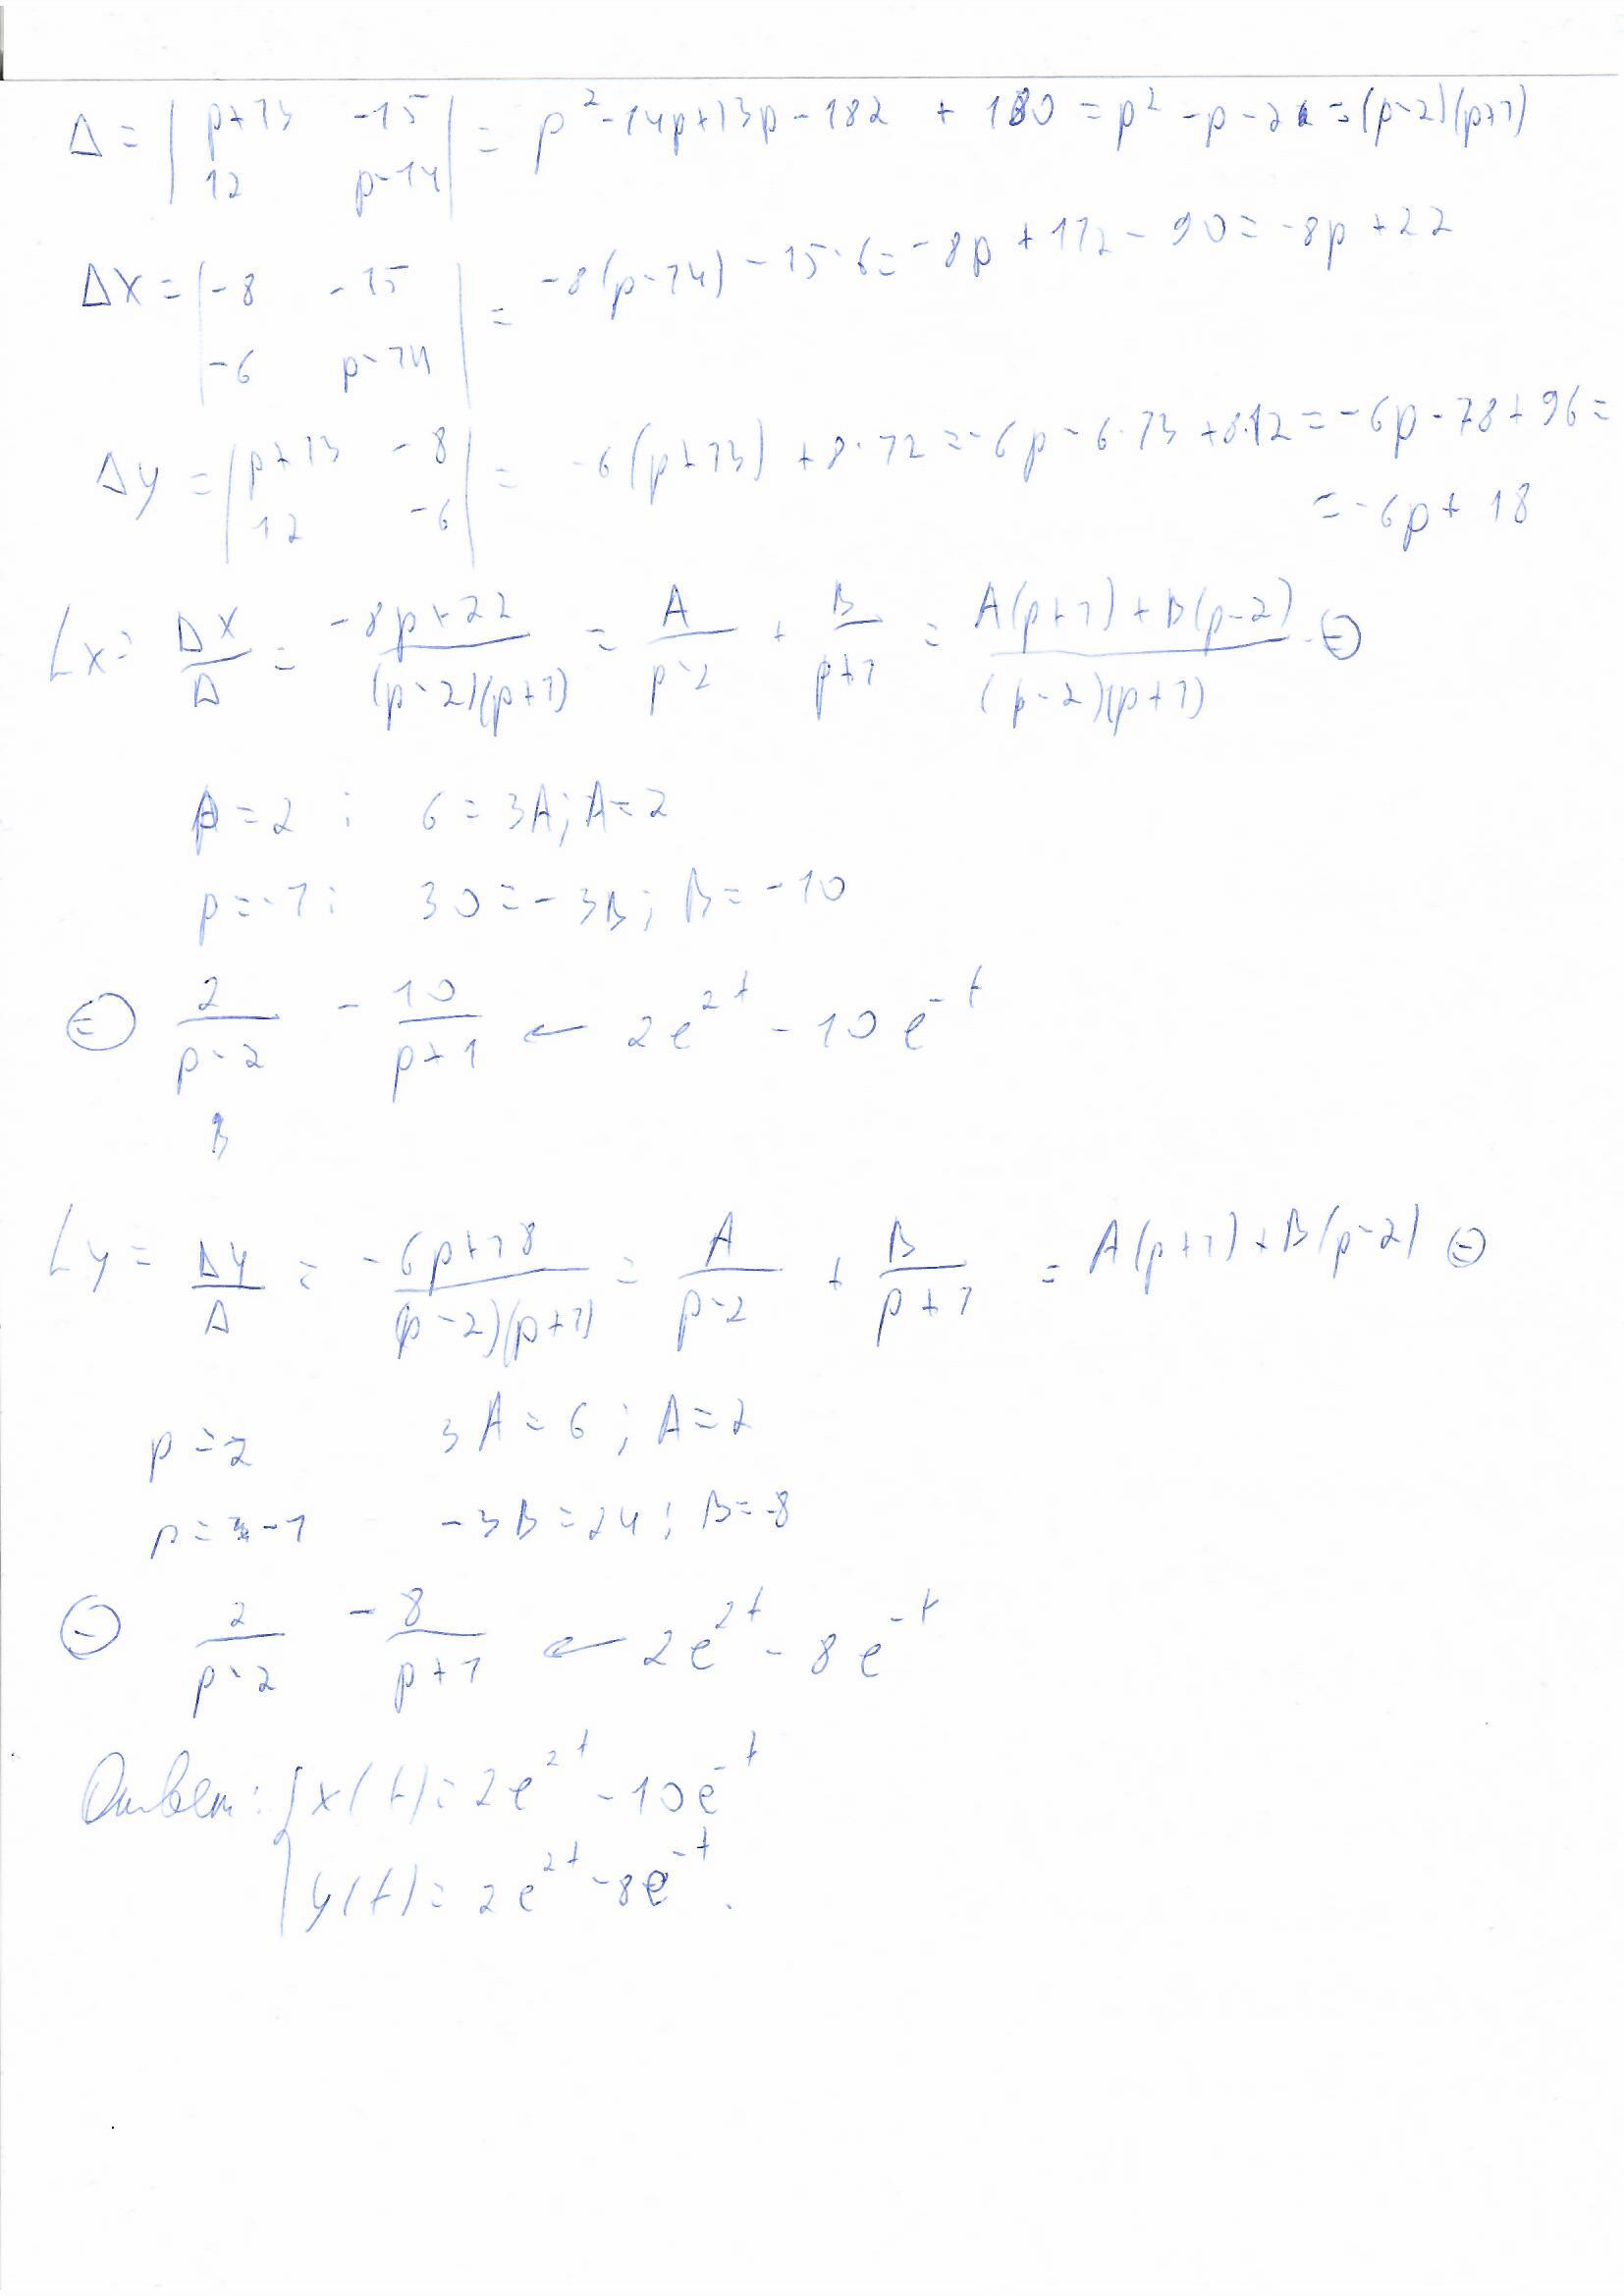 Δ = | p+13 -15 ; 12 p-14 | = p² - 14p + 13p - 182 + 180 = p² - p - 2 = (p-2)(p+1)
Δx = | -8 -15 ; -6 p-14 | = -8(p-14) - 15·6 = -8p + 112 - 90 = -8p + 22
Δy = | p+13 -8 ; 12 -6 | = -6(p+13) + 8·12 = -6p - 6·13 + 8·12 = -6p - 78 + 96 =
= -6p + 18
Lx = Δx/Δ = (-8p+22)/((p-2)(p+1)) = A/(p-2) + B/(p+1) = (A(p+1) + B(p-2))/((p-2)(p+1)) ⊜
p = 2 : 6 = 3A; A = 2
p = -1 : 30 = -3B; B = -10
⊜ 2/(p-2) - 10/(p+1) ← 2e^{2t} - 10e^{-t}
В
Ly = Δy/Δ = (-6p+18)/((p-2)(p+1)) = A/(p-2) + B/(p+1) = A(p+1) + B(p-2) ⊜
p = 2 3A = 6; A = 2
p = -1 -3B = 24; B = -8
⊜ 2/(p-2) - 8/(p+1) ← 2e^{2t} - 8e^{-t}
Ответ: { x(t) = 2e^{2t} - 10e^{-t}
y(t) = 2e^{2t} - 8e^{-t}.